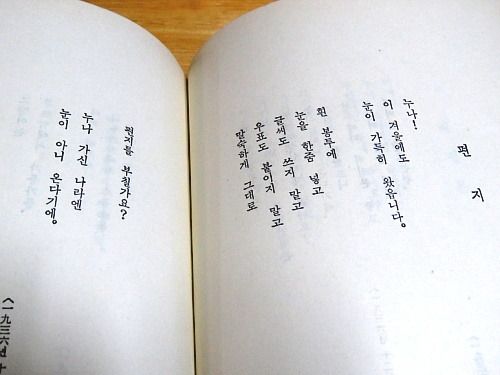 편 지
누나!
이 겨울에도
눈이 가득히 왔읍니다.
흰 봉투에
눈을 한줌 넣고
글씨도 쓰지 말고
우표도 붙이지 말고
말숙하게 그대로
편지를 부칠가요?
누나 가신 나라엔
눈이 아니 온다기에.
〈一九三六년 十